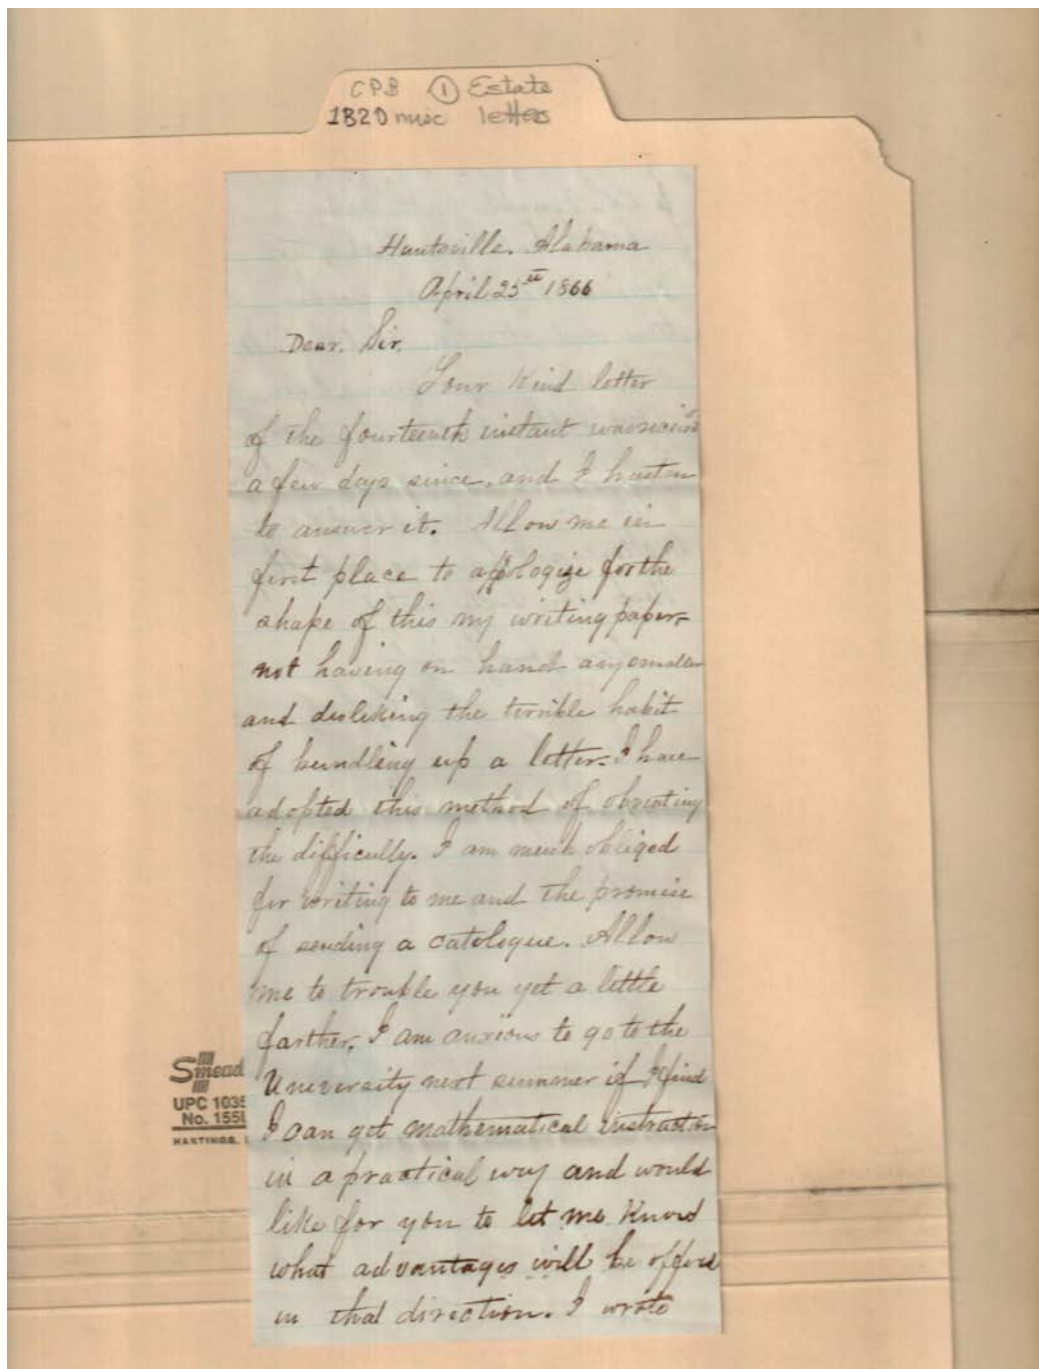 CPB ① Estate
1820 misc letters
Huntsville. Alabama
April 25th 1866
Dear. Sir.
Your kind letter
of the fourteenth instant was
a few days since, and I hasten
to answer it. Allow me in
first place to appologize for the
shape of this my writing paper,
not having on hand any smaller
and disliking the terrible habit
of bundling up a letter. I have
adopted this method of obviating
the difficulty. I am much obliged
for writing to me and the promise
of sending a catologue. Allow
me to trouble you yet a little
farther, I am anxious to go to the
University next summer if I find
I can get mathematical instruction
in a practical way and would
like for you to let me know
what advantages will be offered
in that direction. I wrote
Smead
UPC 1035
No. 155L
HASTINGS,